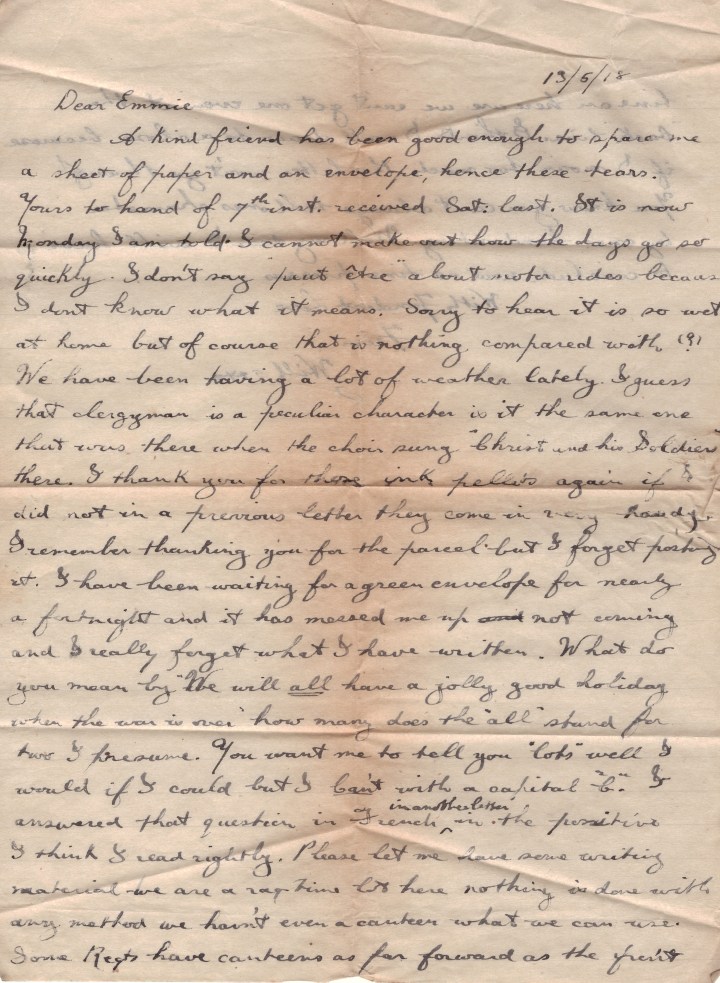 13/5/18
Dear Emmie
A kind friend has been good enough to spare me
a sheet of paper and an envelope, hence these tears.
Yours to hand of 7th inst. received Sat: last. It is now
Monday I am told. I cannot make out how the days go so
quickly. I don't say "peut être" about motor rides becaus
I dont know what it means. Sorry to hear it is so wet
at home but of course that is nothing compared with (?)
We have been having a lot of weather lately. I guess
that clergyman is a peculiar character is it the same one
that was there when the choir sung "Christ and his Soldiers"
there. I thank you for those ink pellets again if I
did not in a previous letter they come in very handy.
I remember thanking you for the parcel but I forget posting
it. I have been waiting for a green envelope for nearly
a fortnight and it has messed me up and not coming
and I really forget what I have written. What do
you mean by "We will all have a jolly good holiday
when the war is over" how many does the "all" stand for
two I presume. You want me to tell you "lots" well I
would if I could but I can't with a capital "C". I
answered that question in French in another letter in the positive
I think I read rightly. Please let me have some writing
material we are a rag-time lot here nothing is done with
any method we hav'nt even a canteen what we can use.
Some Regts have canteens as far forward as the front